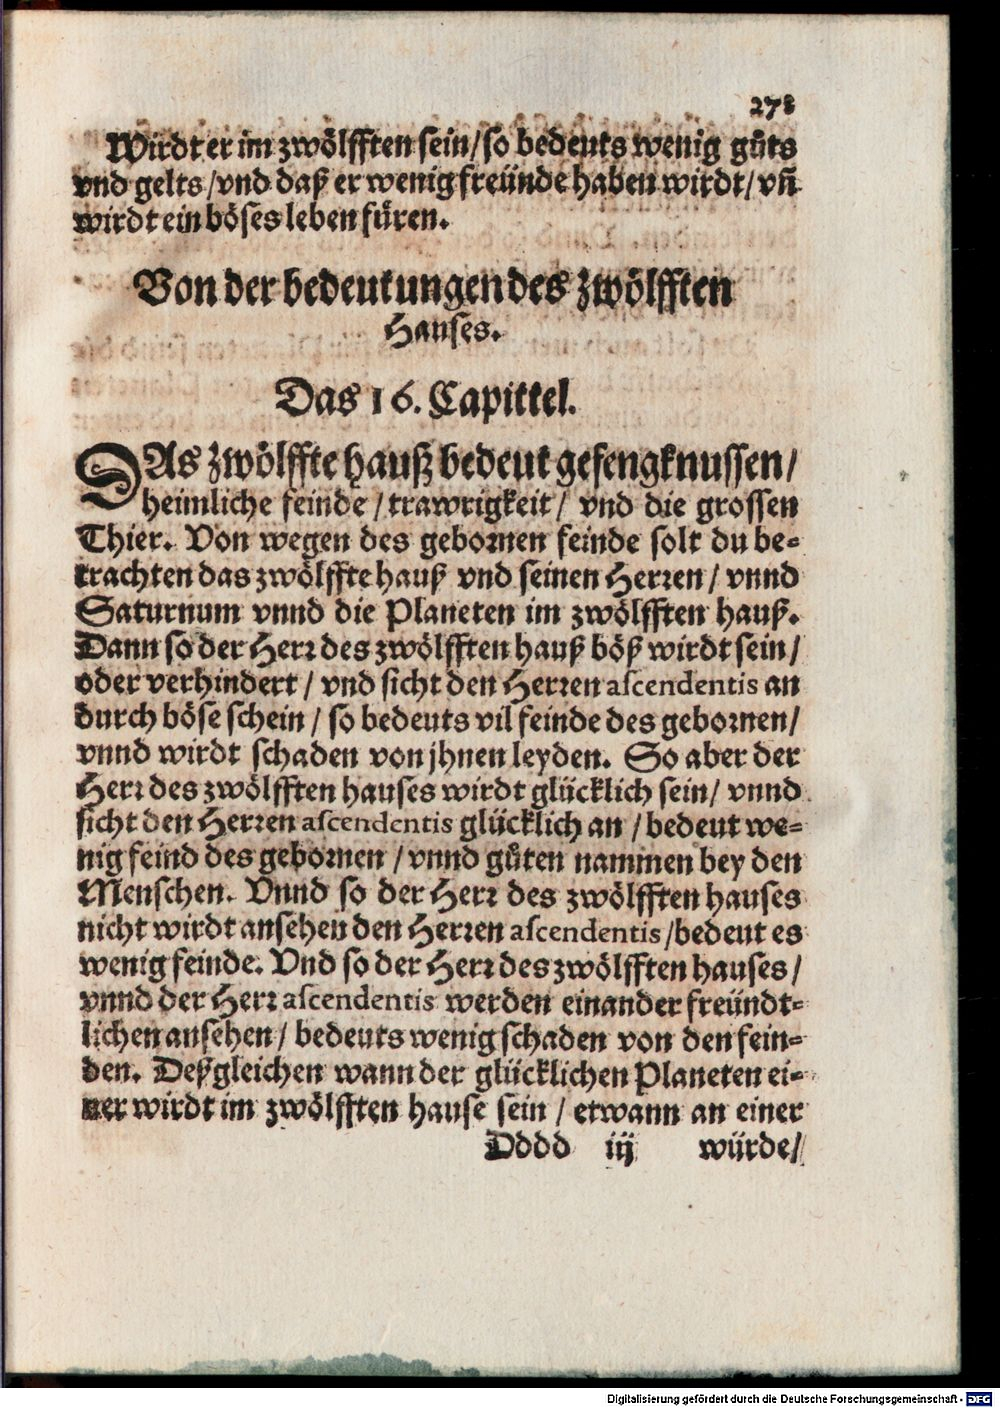 278
Wirdt er im zwölfften sein/so bedeuts wenig gůts
vnd gelts/vnd daß er wenig freünde haben wirdt/vñ
wirdt ein böses leben füren.
Von der bedeutungen des zwölfften
Hauses.
Das 16. Capittel.
DAs zwölffte hauß bedeut gefengknussen/
heimliche feinde/trawrigkeit/ vnd die grossen
Thier. Von wegen des gebornen feinde solt du be=
trachten das zwölffte hauß vnd seinen Herren/ vnnd
Saturnum vnnd die Planeten im zwölfften hauß.
Dann so der Herr des zwölfften hauß böß wirdt sein/
oder verhindert/ vnd sicht den Herren ascendentis an
durch böse schein/ so bedeuts vil feinde des gebornen/
vnnd wirdt schaden von jhnen leyden. So aber der
Herr des zwölfften hauses wirdt glücklich sein/ vnnd
sicht den Herren ascendentis glücklich an/bedeut we=
nig feind des gebornen/vnnd gůten nammen bey den
Menschen. Vnnd so der Herr des zwölfften hauses
nicht wirdt ansehen den Herren ascendentis/bedeut es
wenig feinde. Vnd so der Herr des zwölfften hauses/
vnnd der Herr ascendentis werden einander freündt=
lichen ansehen/ bedeuts wenig schaden von den fein=
den. Deßgleichen wann der glücklichen Planeten ei=
ner wirdt im zwölfften hause sein/ etwann an einer
Dddd iij würde/
Digitalisierung gefördert durch die Deutsche Forschungsgemeinschaft - DFG